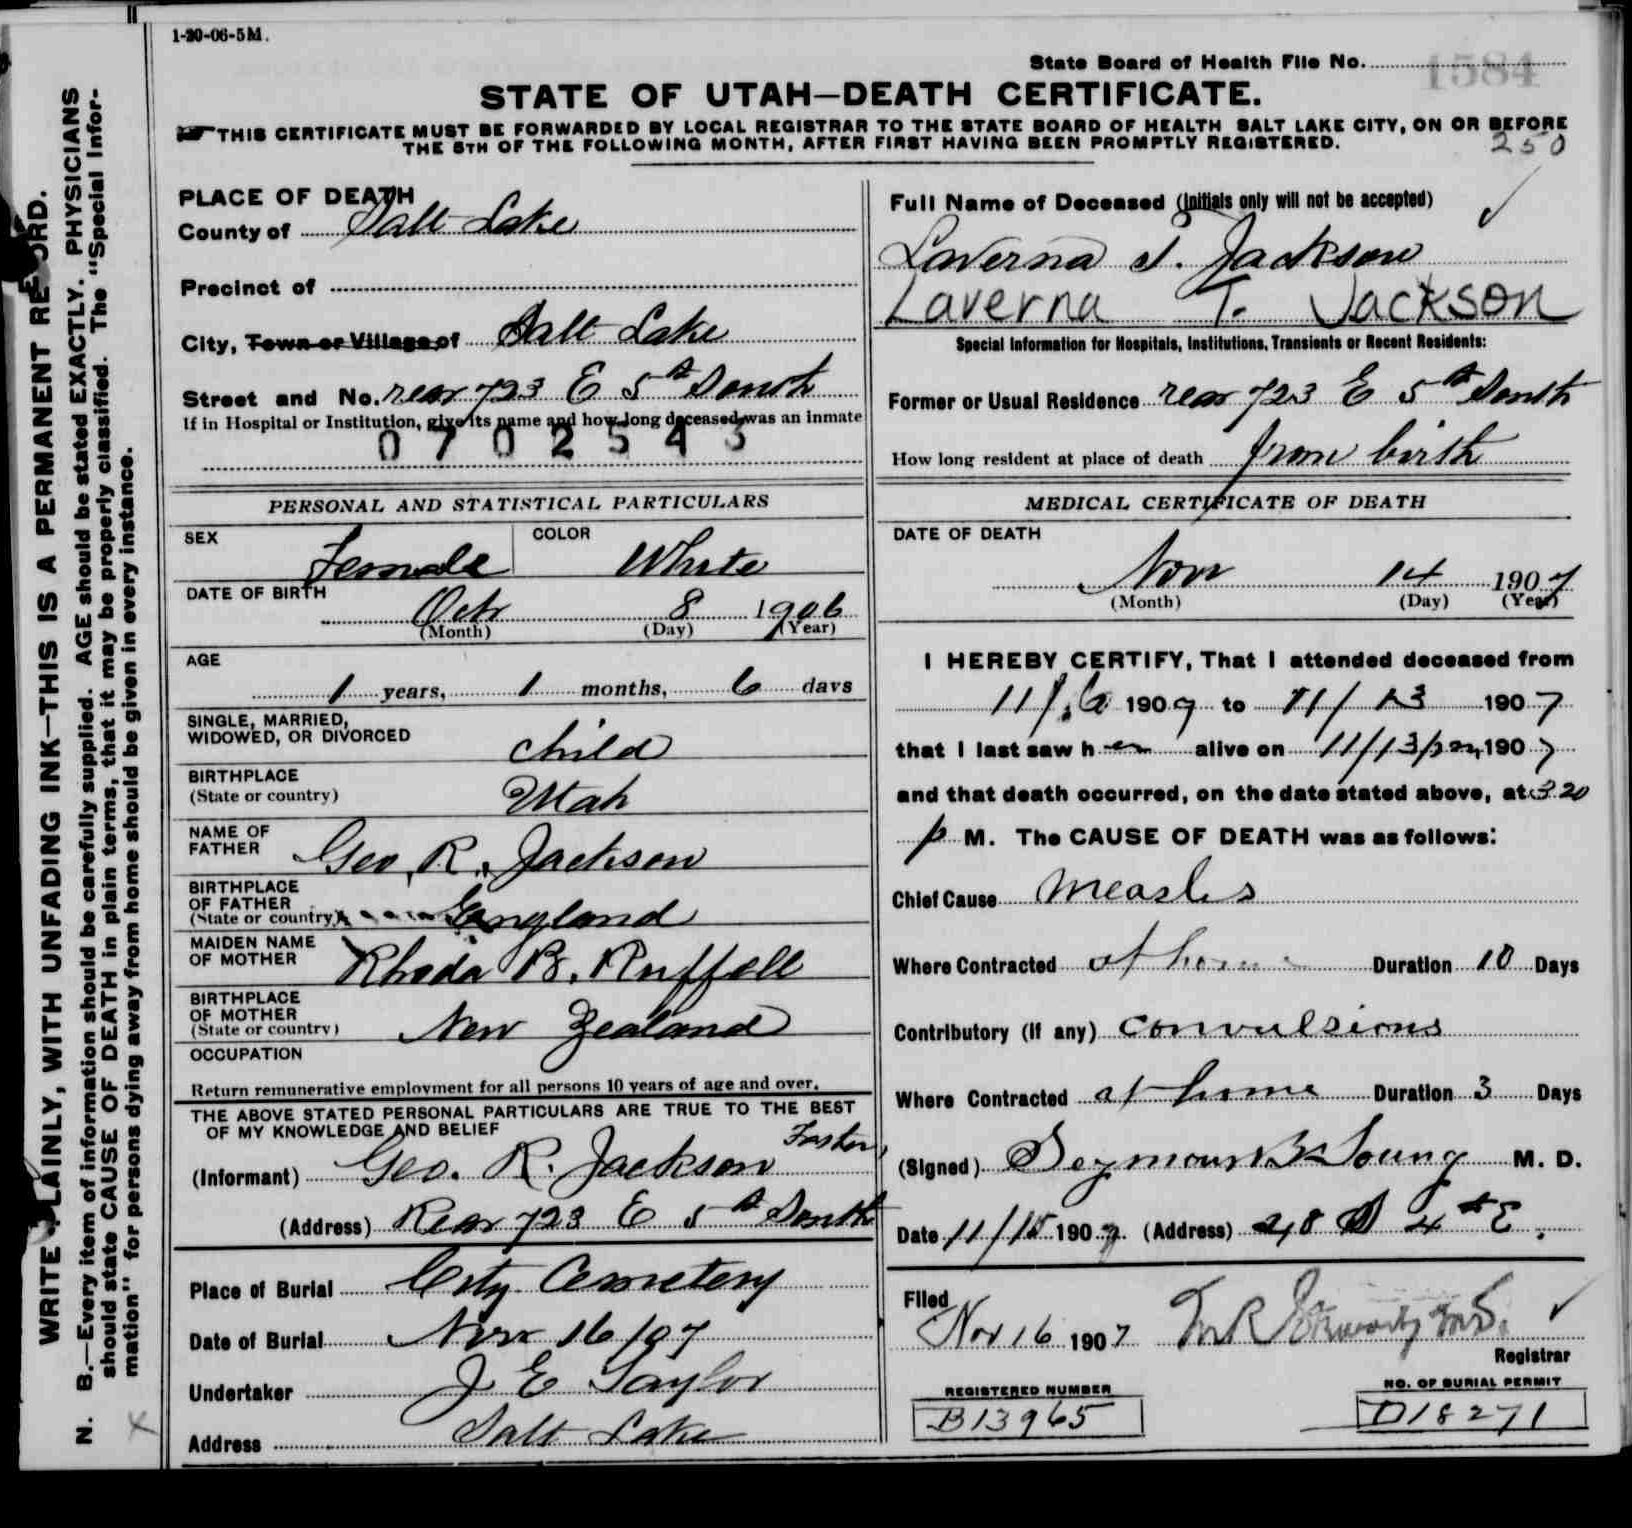 1-20-06-5M.
State Board of Health File No. 1584
STATE OF UTAH—DEATH CERTIFICATE.
THIS CERTIFICATE MUST BE FORWARDED BY LOCAL REGISTRAR TO THE STATE BOARD OF HEALTH SALT LAKE CITY, ON OR BEFORE
THE 5TH OF THE FOLLOWING MONTH, AFTER FIRST HAVING BEEN PROMPTLY REGISTERED.
250
WRITE PLAINLY, WITH UNFADING INK—THIS IS A PERMANENT RECORD.
N. B.—Every item of information should be carefully supplied. AGE should be stated EXACTLY. PHYSICIANS
should state CAUSE OF DEATH in plain terms, that it may be properly classified. The "Special Infor-
mation" for persons dying away from home should be given in every instance.
PLACE OF DEATH
County of Salt Lake
Precinct of
City, Town or Village of Salt Lake
Street and No. rear 723 E 5th South
If in Hospital or Institution, give its name and how long deceased was an inmate
0702543
PERSONAL AND STATISTICAL PARTICULARS
SEX Female COLOR White
DATE OF BIRTH
Oct 8 1906
(Month) (Day) (Year)
AGE
1 years, 1 months, 6 days
SINGLE, MARRIED,
WIDOWED, OR DIVORCED child
BIRTHPLACE
(State or country) Utah
NAME OF
FATHER Geo. R. Jackson
BIRTHPLACE
OF FATHER
(State or country) England
MAIDEN NAME
OF MOTHER Rhoda B. Ruffell
BIRTHPLACE
OF MOTHER
(State or country) New Zealand
OCCUPATION
Return remunerative employment for all persons 10 years of age and over.
THE ABOVE STATED PERSONAL PARTICULARS ARE TRUE TO THE BEST
OF MY KNOWLEDGE AND BELIEF
(Informant) Geo. R. Jackson
(Address) Rear 723 E 5th South
Place of Burial City Cemetery
Date of Burial Nov 16/07
Undertaker J E Taylor
Address Salt Lake
Full Name of Deceased (Initials only will not be accepted)
Laverna T. Jackson
Laverna T. Jackson
Special Information for Hospitals, Institutions, Transients or Recent Residents:
Former or Usual Residence rear 723 E 5th South
How long resident at place of death from birth
MEDICAL CERTIFICATE OF DEATH
DATE OF DEATH
Nov 14 1907
(Month) (Day) (Year)
I HEREBY CERTIFY, That I attended deceased from
11/6 1907 to 11/13 1907
that I last saw her alive on 11/13/ 1907
and that death occurred, on the date stated above, at 3 20
p M. The CAUSE OF DEATH was as follows:
Chief Cause Measles
Where Contracted at home Duration 10 Days
Contributory (if any) convulsions
Where Contracted at home Duration 3 Days
(Signed) Seymour B Young M. D.
Date 11/15 1907. (Address) 48 S 4th E.
Filed
Nov 16 1907
Registrar
REGISTERED NUMBER
B13965
NO. OF BURIAL PERMIT
D18271